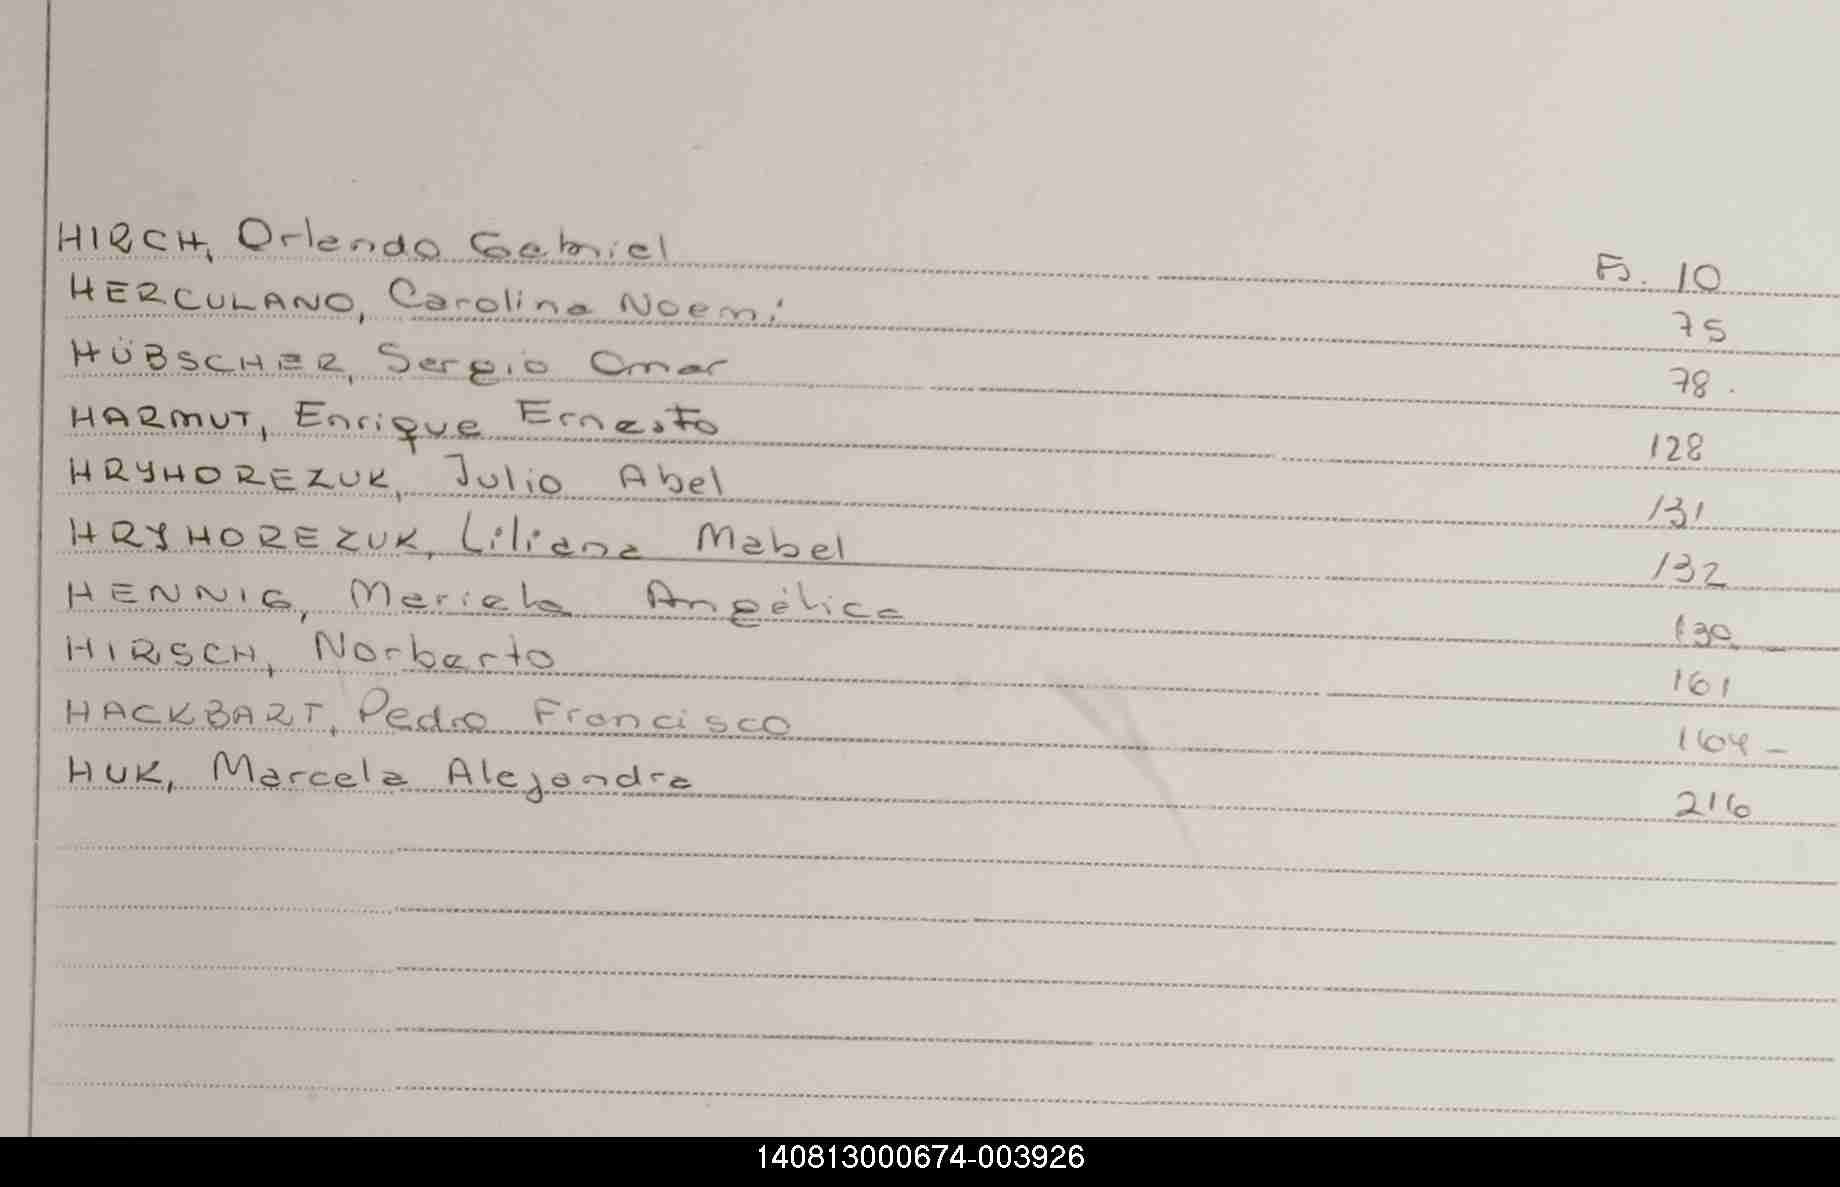 HIRCH, Orlando Gabriel Fs. 10
HERCULANO, Carolina Noemi 75
HÜBSCHER, Sergio Omar 78.
HARMUT, Enrique Ernesto 128
HRYHOREZUK, Julio Abel 131
HRYHOREZUK, Liliana Mabel 132
HENNIG, Mariela Angélica
HIRSCH, Norberto 161
HACKBART, Pedro Francisco 164-
HUK, Marcela Alejandra 216
140813000674-003926